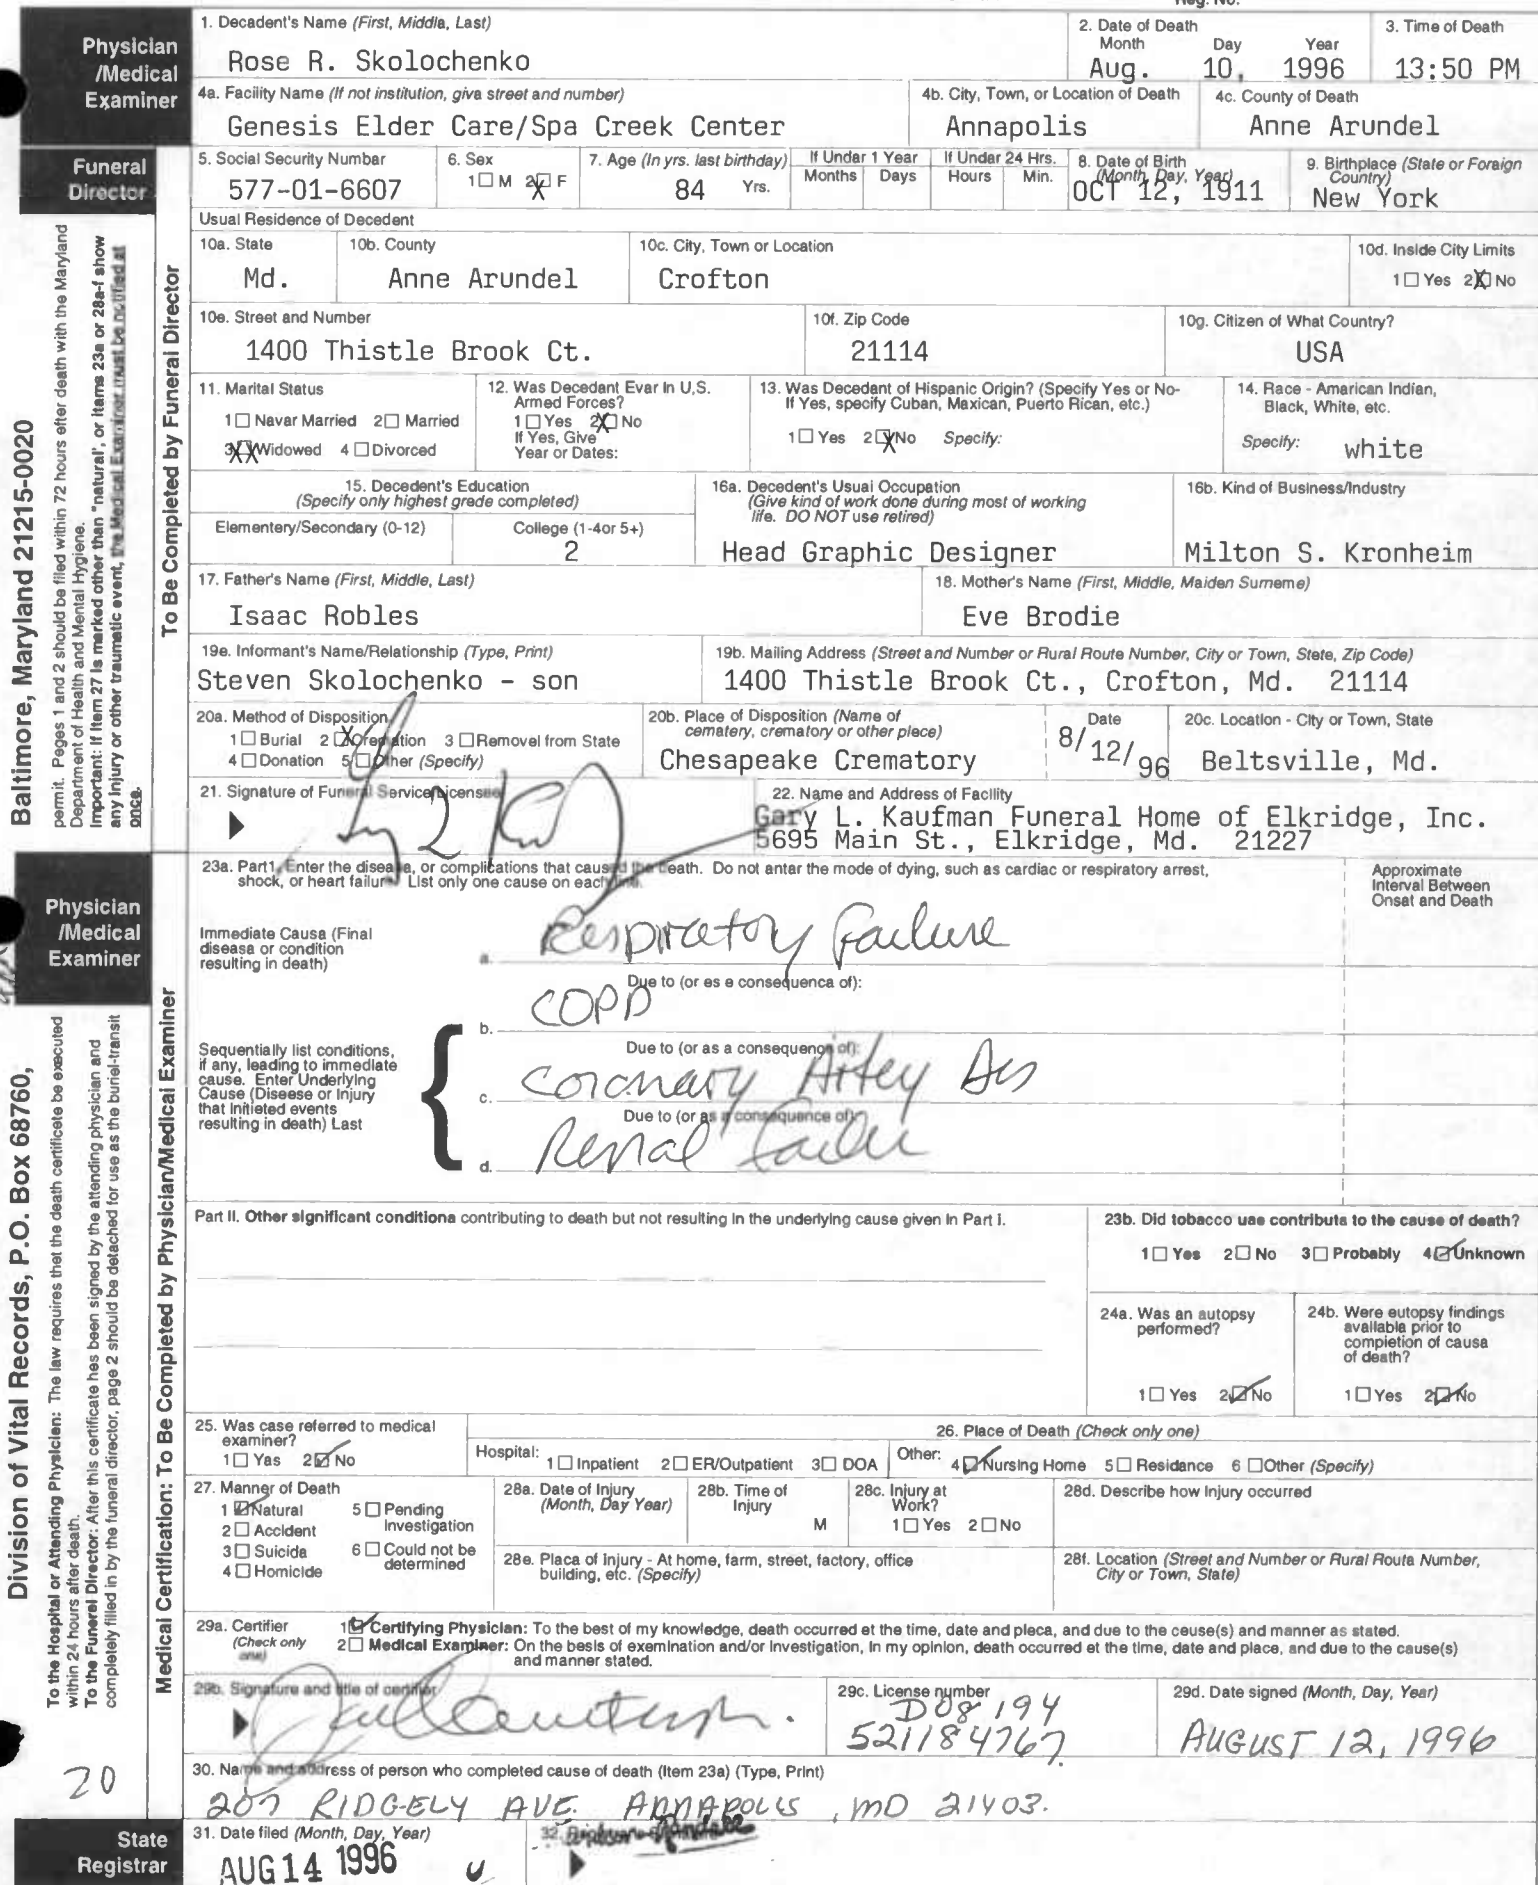 Reg. No.
Physician
/Medical
Examiner
1. Decadent's Name (First, Middla, Last)
Rose R. Skolochenko
2. Date of Death
Month Day Year
Aug. 10, 1996
3. Time of Death
13:50 PM
4a. Facility Name (If not institution, giva street and number)
Genesis Elder Care/Spa Creek Center
4b. City, Town, or Location of Death
Annapolis
4c. County of Death
Anne Arundel
Funeral
Director
5. Social Security Numbar
577-01-6607
6. Sex
1☐ M 2☒ F
7. Age (In yrs. last birthday)
84 Yrs.
If Undar 1 Year
Months Days
If Undar 24 Hrs.
Hours Min.
8. Date of Birth
(Month, Day, Year)
OCT 12, 1911
9. Birthplace (State or Foraign
Country)
New York
Usual Residence of Decedent
10a. State
Md.
10b. County
Anne Arundel
10c. City, Town or Location
Crofton
10d. Insida City Limits
1☐ Yes 2☒ No
10e. Street and Number
1400 Thistle Brook Ct.
10f. Zip Code
21114
10g. Citizen of What Country?
USA
11. Marital Status
1☐ Navar Married 2☐ Married
3☒ Widowed 4☐ Divorced
12. Was Decedant Evar In U.S.
Armed Forces?
1☐ Yes 2☒ No
If Yes, Give
Year or Dates:
13. Was Decedant of Hispanic Origin? (Specify Yes or No-
If Yes, specify Cuban, Maxican, Puerto Rican, etc.)
1☐ Yes 2☒ No Specify:
14. Race - Amarican Indian,
Black, White, etc.
Specify: white
15. Decedent's Education
(Specify only highest grade completed)
Elementery/Secondary (0-12)
College (1-4or 5+)
2
16a. Decedent's Usual Occupation
(Give kind of work done during most of working
life. DO NOT use retired)
Head Graphic Designer
16b. Kind of Business/Industry
Milton S. Kronheim
17. Father's Name (First, Middle, Last)
Isaac Robles
18. Mother's Name (First, Middle, Maiden Surneme)
Eve Brodie
19e. Informant's Name/Relationship (Type, Print)
Steven Skolochenko - son
19b. Mailing Address (Street and Number or Rural Route Number, City or Town, Stete, Zip Code)
1400 Thistle Brook Ct., Crofton, Md. 21114
20a. Method of Disposition
1☐ Burial 2☒ Cremation 3☐ Removal from State
4☐ Donation 5☐ Other (Specify)
20b. Place of Disposition (Name of
cematery, crematory or other plece)
Chesapeake Crematory
Date
8/12/96
20c. Location - City or Town, State
Beltsville, Md.
21. Signature of Funeral Service Licensee
22. Name and Address of Facility
Gary L. Kaufman Funeral Home of Elkridge, Inc.
5695 Main St., Elkridge, Md. 21227
To Be Completed by Funeral Director
Baltimore, Maryland 21215-0020
permit. Peges 1 and 2 should be filed within 72 hours efter death with the Maryland
Department of Health and Mental Hygiene.
Important: If Item 27 is marked other than "natural", or items 23a or 28a-f show
any injury or other traumatic event, the Medical Examiner must be notified at
once.
Physician
/Medical
Examiner
23a. Part1. Enter the disease, or complications that caused the death. Do not antar the mode of dying, such as cardiac or respiratory arrest,
shock, or heart failure. List only one cause on each line.
Approximate
Interval Between
Onsat and Death
Immediate Causa (Final
diseasa or condition
resulting in death)
a. Respiratory Failure
Due to (or es e consequenca of):
b. COPD
Due to (or as a consequence of):
Sequentially list conditions,
if any, leading to immediate
cause. Enter Underlying
Cause (Diseese or Injury
that Initieted events
resulting in death) Last
c. Coronary Artey Dis
Due to (or as a consequence of):
d. Renal Failu
Part II. Other significant conditiona contributing to death but not resulting in the underlying cause given in Part I.
23b. Did tobacco uae contributa to the cause of death?
1☐ Yes 2☐ No 3☐ Probably 4☑ Unknown
24a. Was an autopsy
performed?
1☐ Yes 2☑ No
24b. Were eutopsy findings
availabla prior to
completion of causa
of death?
1☐ Yes 2☑ No
25. Was case referred to medical
examiner?
1☐ Yas 2☑ No
26. Place of Death (Check only one)
Hospital: 1☐ Inpatient 2☐ ER/Outpatient 3☐ DOA
Other: 4☑ Nursing Home 5☐ Residance 6☐ Other (Specify)
27. Manner of Death
1☑ Natural 5☐ Pending
Investigation
2☐ Accident
3☐ Suicida 6☐ Could not be
determined
4☐ Homicide
28a. Date of Injury
(Month, Day Year)
28b. Time of
Injury
M
28c. Injury at
Work?
1☐ Yes 2☐ No
28d. Describe how Injury occurred
28e. Placa of Injury - At home, farm, street, factory, office
building, etc. (Specify)
28f. Location (Street and Number or Rural Routa Number,
City or Town, State)
29a. Certifier
(Check only
one)
1☑ Certifying Physician: To the best of my knowledge, death occurred et the time, date and pleca, and due to the ceuse(s) and manner as stated.
2☐ Medical Examiner: On the besis of exemination and/or Investigation, in my opinion, death occurred et the time, date and place, and due to the cause(s)
and manner stated.
29b. Signature and title of certifier
29c. License number
D08194
521184767
29d. Date signed (Month, Day, Year)
AUGUST 12, 1996
30. Name and address of person who completed cause of death (Item 23a) (Type, Print)
207 RIDGELY AVE. ANNAPOLIS, MD 21403.
Medical Certification: To Be Completed by Physician/Medical Examiner
Division of Vital Records, P.O. Box 68760,
To the Hospital or Attending Physicien: The law requires thet the death certificete be executed
within 24 hours after death.
To the Funerel Director: After this certificate hes been signed by the attending physician and
completely filled in by the funeral director, page 2 should be detached for use as the buriel-transit
20
State
Registrar
31. Date filed (Month, Day, Year)
AUG 14 1996
32.